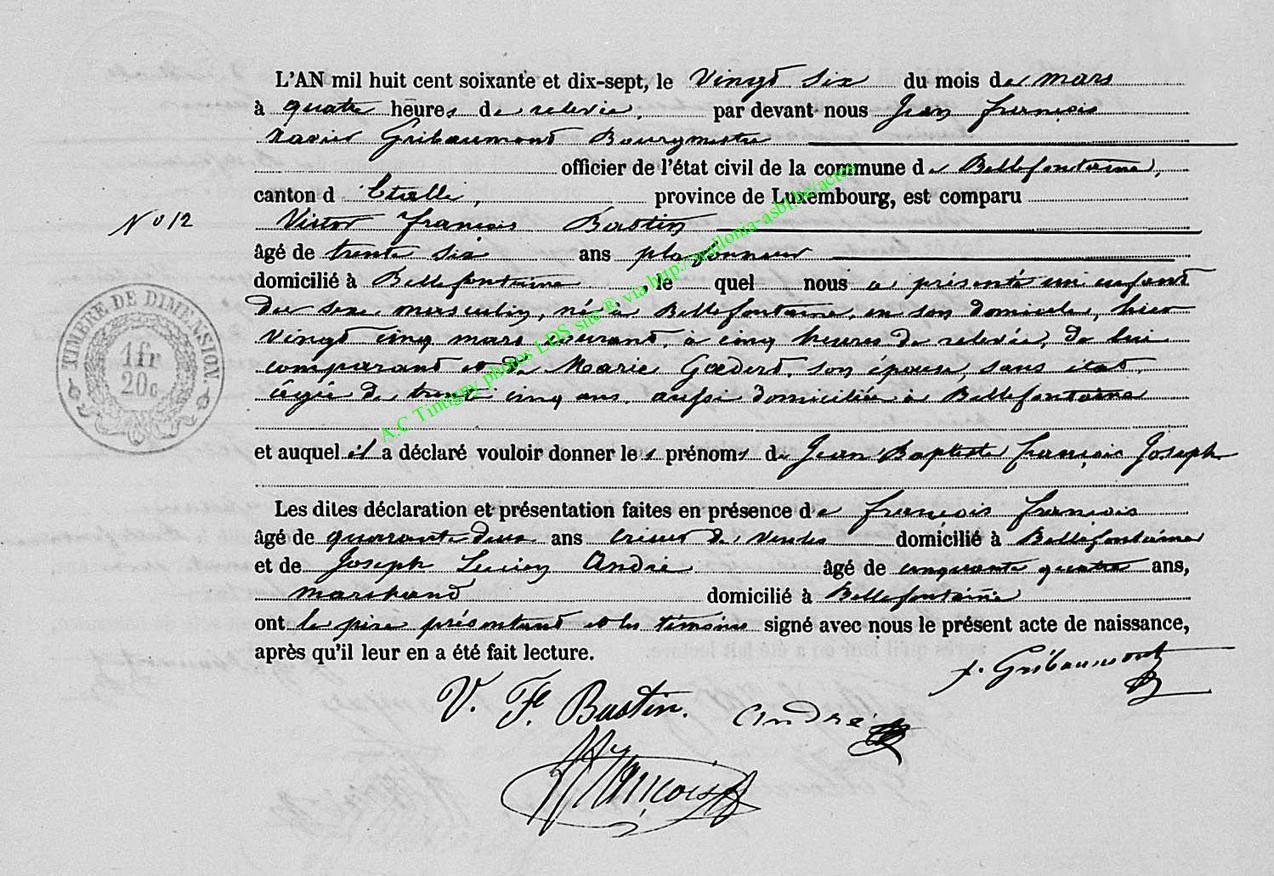 L'AN mil huit cent soixante et dix-sept, le Vingt six du mois de mars
à quatre heures de relevée, par devant nous Jean françois
Xavier Gribaumont Bourgmestre
officier de l'état civil de la commune de Bellefontaine,
canton d'Etalle, province de Luxembourg, est comparu
No 12
Victor françois Bastin
âgé de trente six ans plafonneur
domicilié à Bellefontaine, le quel nous a présenté un enfant
du sexe masculin, né à Bellefontaine, en son domicile, hier
vingt cinq mars courant, à cinq heures de relevée, de lui
comparant et de Marie Gœdert, son épouse, sans état,
âgée de trente cinq ans, aussi domiciliée à Bellefontaine
et auquel il a déclaré vouloir donner les prénoms de Jean Baptiste françois Joseph
Les dites déclaration et présentation faites en présence de françois françois
âgé de quarante deux ans crieur de Ventes domicilié à Bellefontaine
et de Joseph Lucien André âgé de cinquante quatre ans,
marchand domicilié à Bellefontaine
ont le père présentant et les témoins signé avec nous le présent acte de naissance,
après qu'il leur en a été fait lecture.
f. Gribaumont
V. F. Bastin. André
François
TIMBRE DE DIMENSION
1 fr
20 c
A.C Tintigny photos LDS site ® via http://wallonia-asbl.be/actes